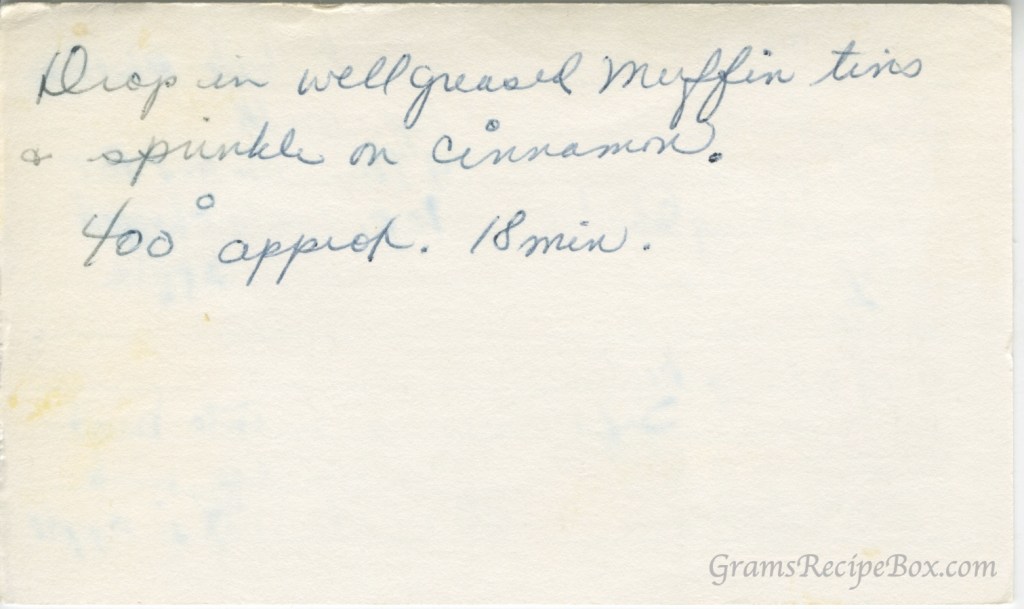 Drop in well greased Muffin tins
& sprinkle on cinnamon.
400° approx. 18 min.
GramsRecipeBox.com